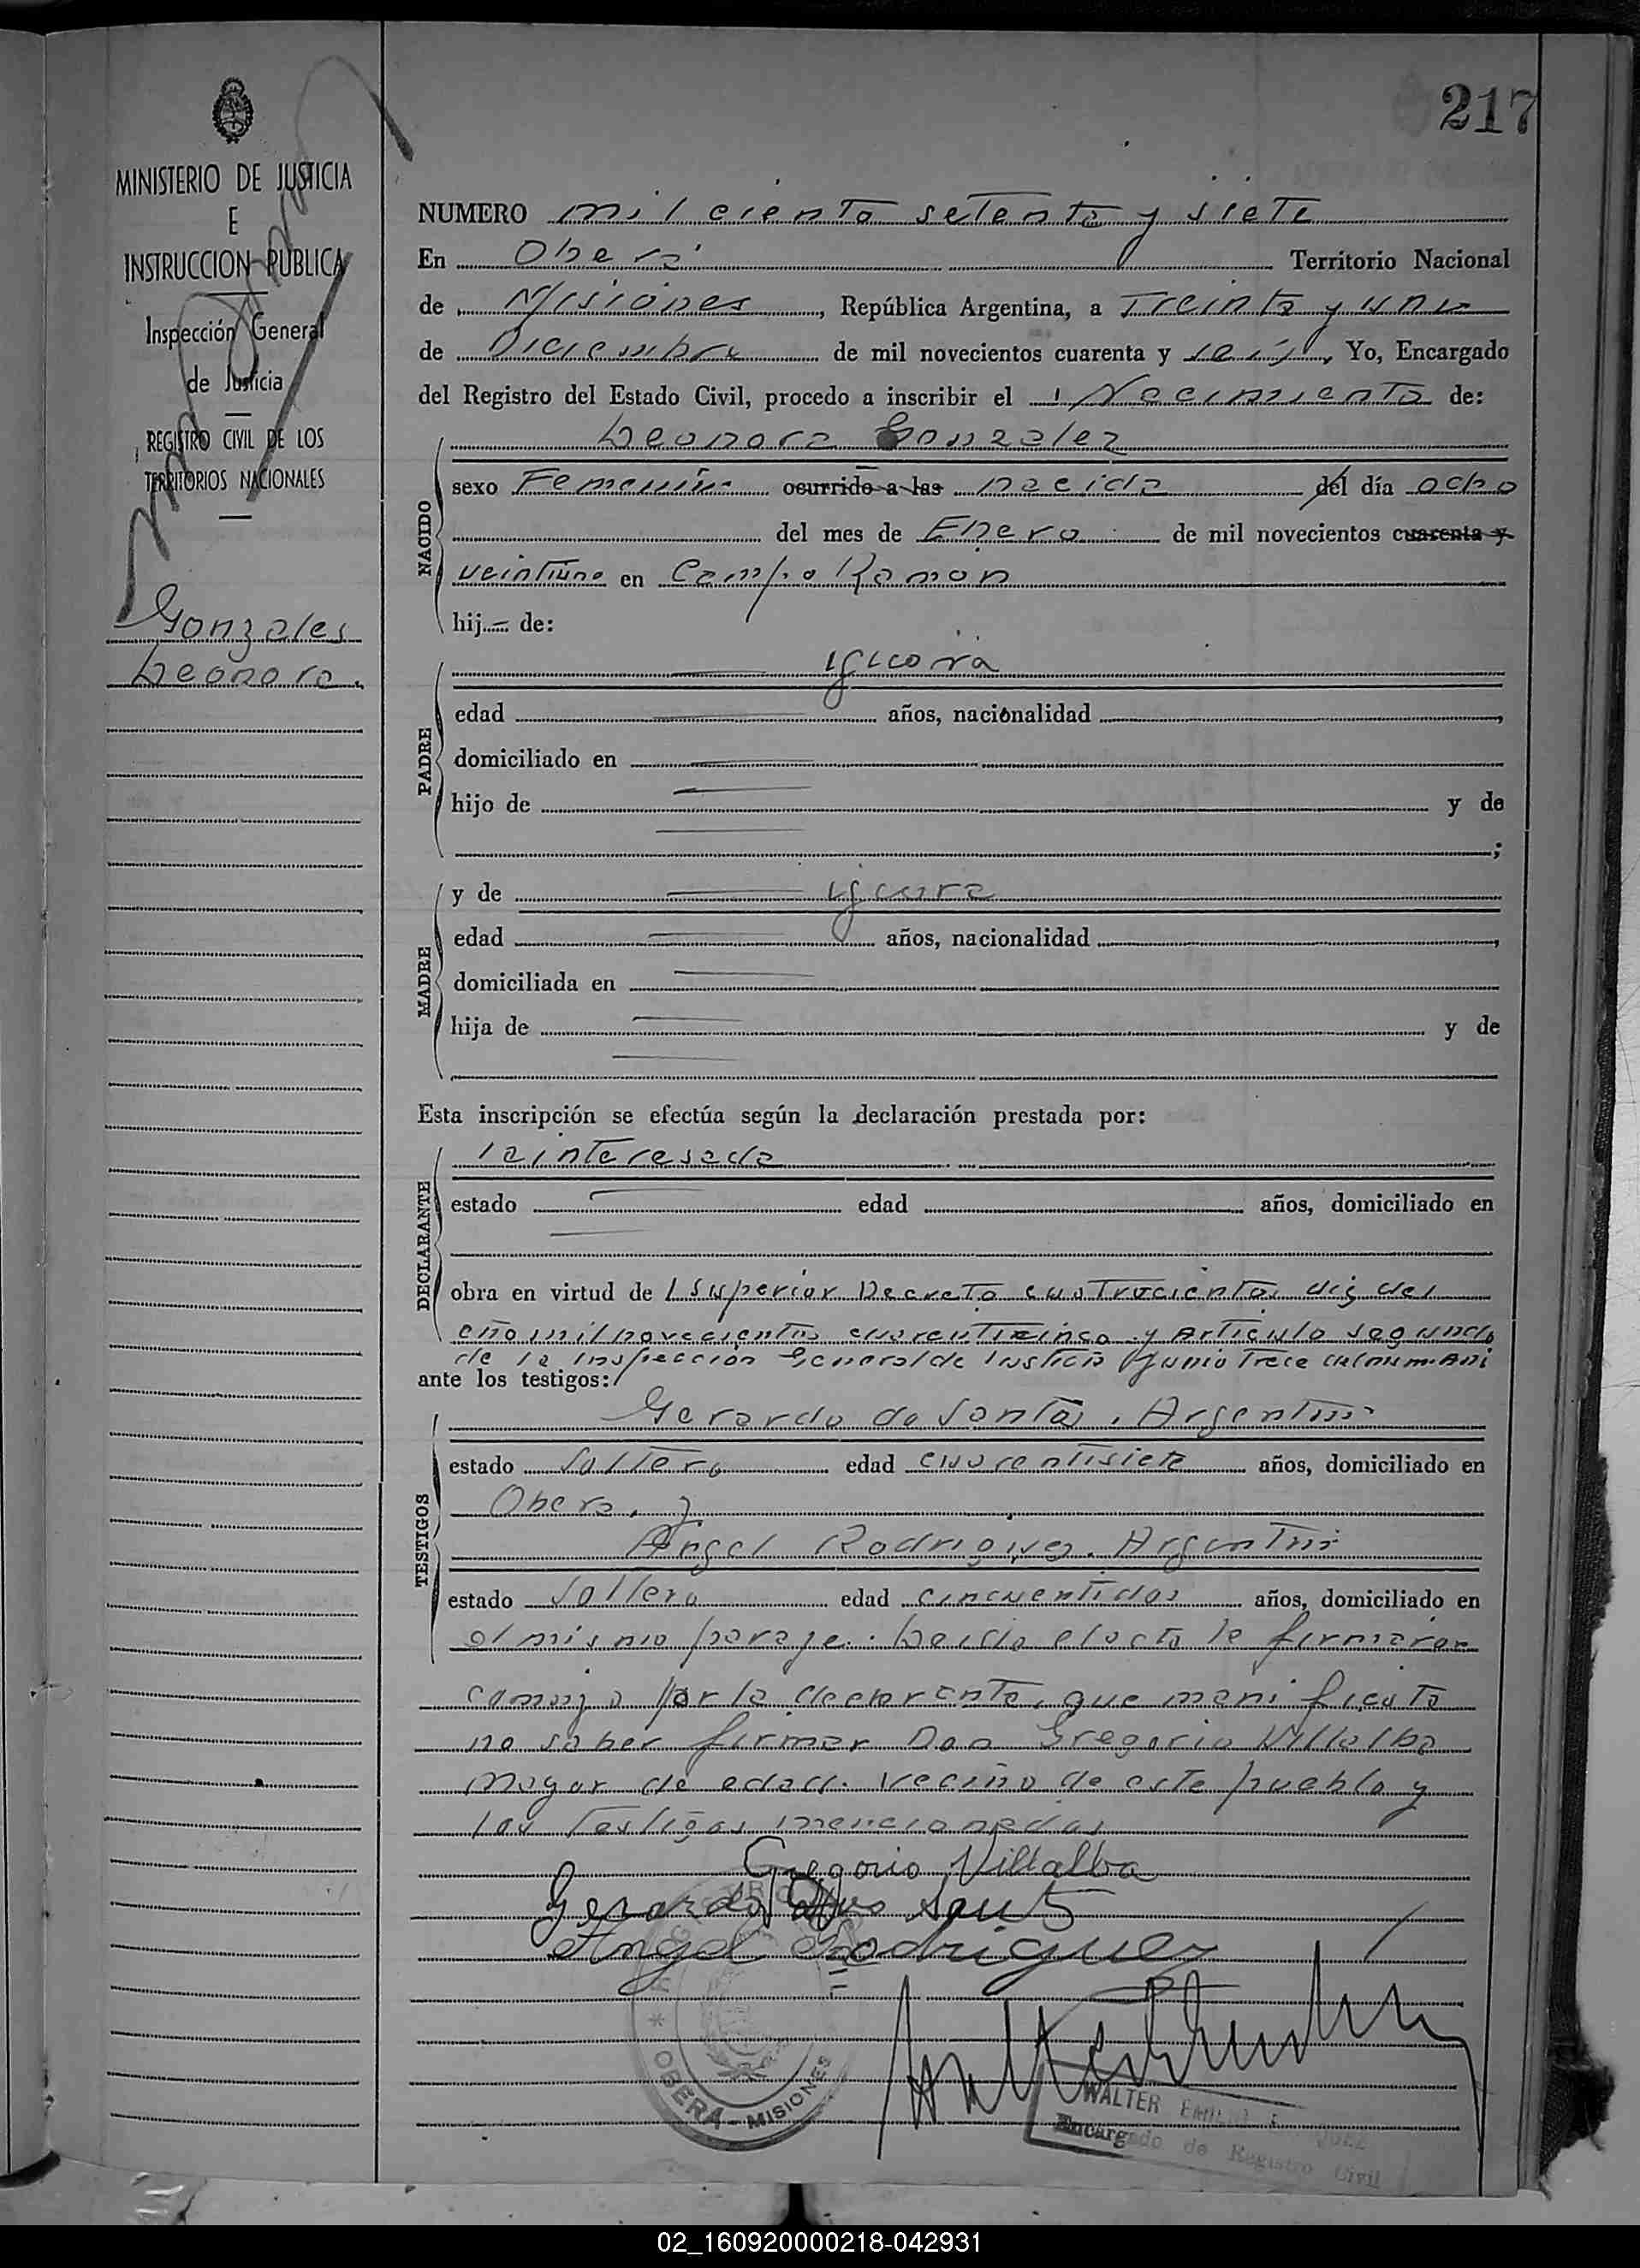 217
MINISTERIO DE JUSTICIA
E
INSTRUCCION PUBLICA
Inspección General
de Justicia
REGISTRO CIVIL DE LOS
TERRITORIOS NACIONALES
Gonzales
Leonora.
NUMERO mil ciento setenta y siete
En Oberá Territorio Nacional
de Misiones, República Argentina, a treinta y uno
de Diciembre de mil novecientos cuarenta y seis, Yo, Encargado
del Registro del Estado Civil, procedo a inscribir el Nacimiento de:
Leonora Gonzalez
NACIDO
sexo Femenino ocurrido a las nacida del día ocho
del mes de Enero de mil novecientos cuarenta y
veintiuno en Campo Ramon
hij de:
PADRE
ignora
edad años, nacionalidad
domiciliado en
hijo de y de
;
MADRE
y de ignora
edad años, nacionalidad
domiciliada en
hija de y de
Esta inscripción se efectúa según la declaración prestada por:
DECLARANTE
la interesada
estado edad años, domiciliado en
obra en virtud de l Superior Decreto cuatrocientos diz del
año mil novecientos cuarenticinco y Articulo segundo
de la Inspección General de Justicia Junio trece
ante los testigos:
TESTIGOS
Gerardo do Santos, Argentino
estado Soltero edad cuarentisiete años, domiciliado en
Obera, y
Angel Rodriguez. Argentino
estado Soltero edad cincuentidos años, domiciliado en
el mismo paraje. Leida el acta la firmaron
conmigo por la declarante, que manificata
no saber firmar Don Gregorio Villalba
mayor de edad. vecino de este pueblo y
los testigos mencionados
Gregorio Villalba
Gerardo
Angel Rodriguez
OBERA - MISIONES
WALTER
Encargado de Registro Civil
02_160920000218-042931